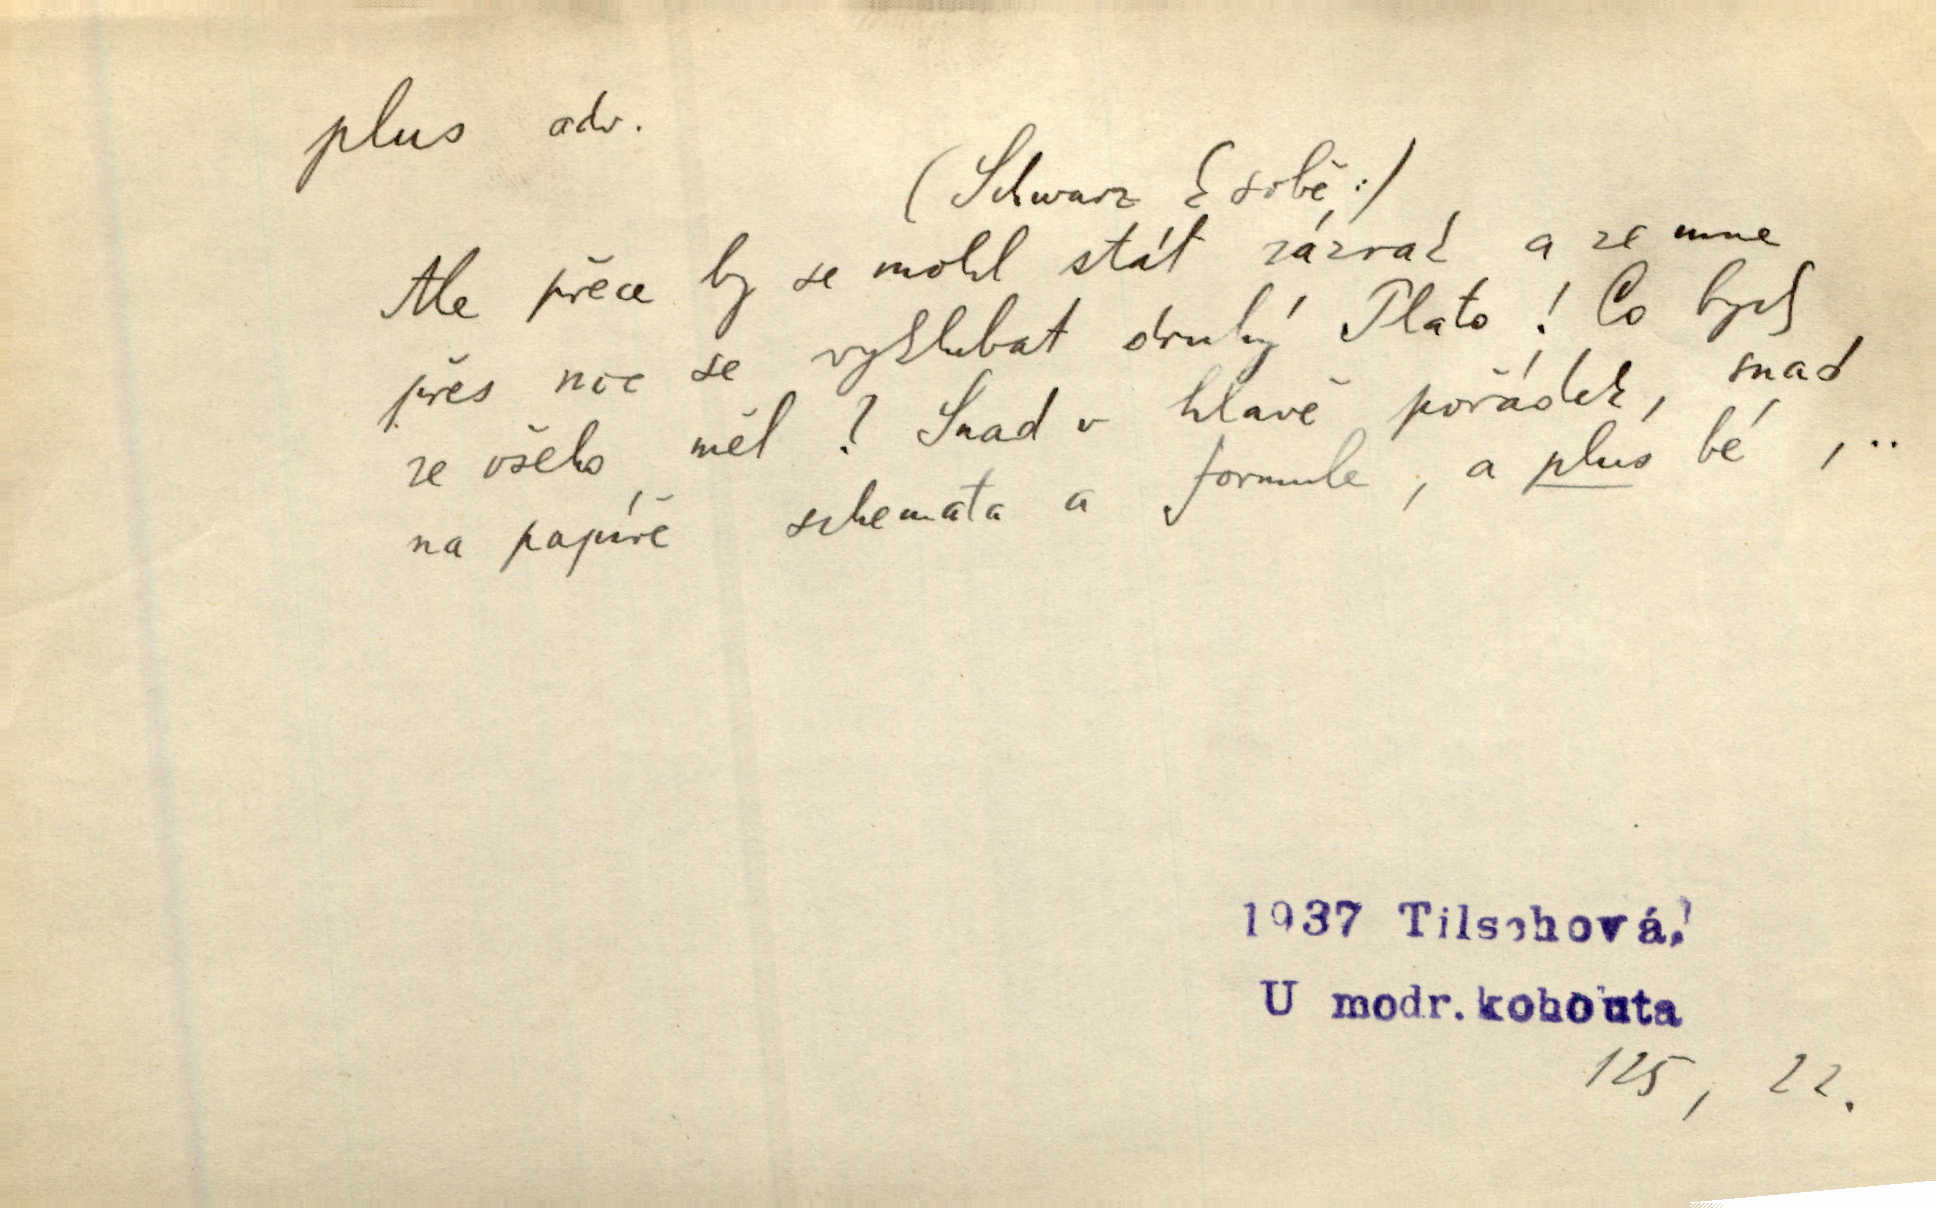 plus adv.
(Schwarz k sobě:)
Ale přece by se mohl stát zázrak a ze mne
přes noc se vyklubat druhý Plato! Co bych
ze všeho měl? Snad v hlavě pořádek, snad
na papíře schemata a formule, a plus bé, ..
1937 Tilschová,
U modr. kohouta
125, 22.